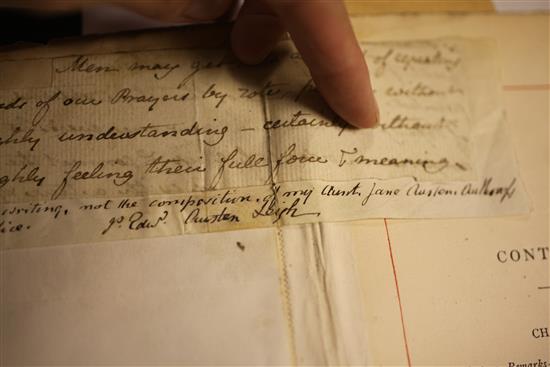 Men may get of repeating
ds of our Prayers by rote, without
ghly understanding – certainly without
ghly feeling their full force & meaning.
writing, not the composition, of my Aunt, Jane Austen, Author of
ice. Js. Edwd. Austen Leigh
CONT
CH
Remarks